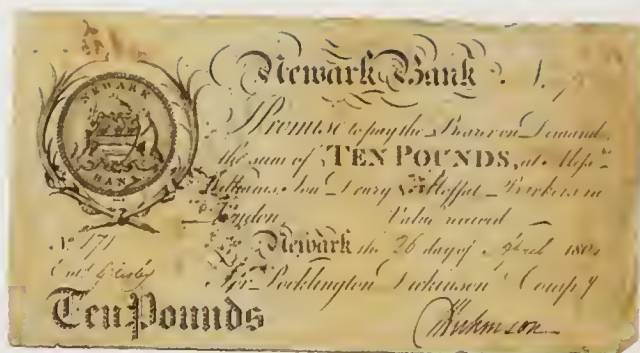 NEWARK
BANK
Newark Bank
I Promise to pay the Bearer on Demand
the sum of TEN POUNDS, at Mess.rs
Son Bankers in
London. Value received
No. 171 Newark the 26 day of 180
Ent.d For Pocklington Dickinson & Comp.y
Ten Pounds Dickinson